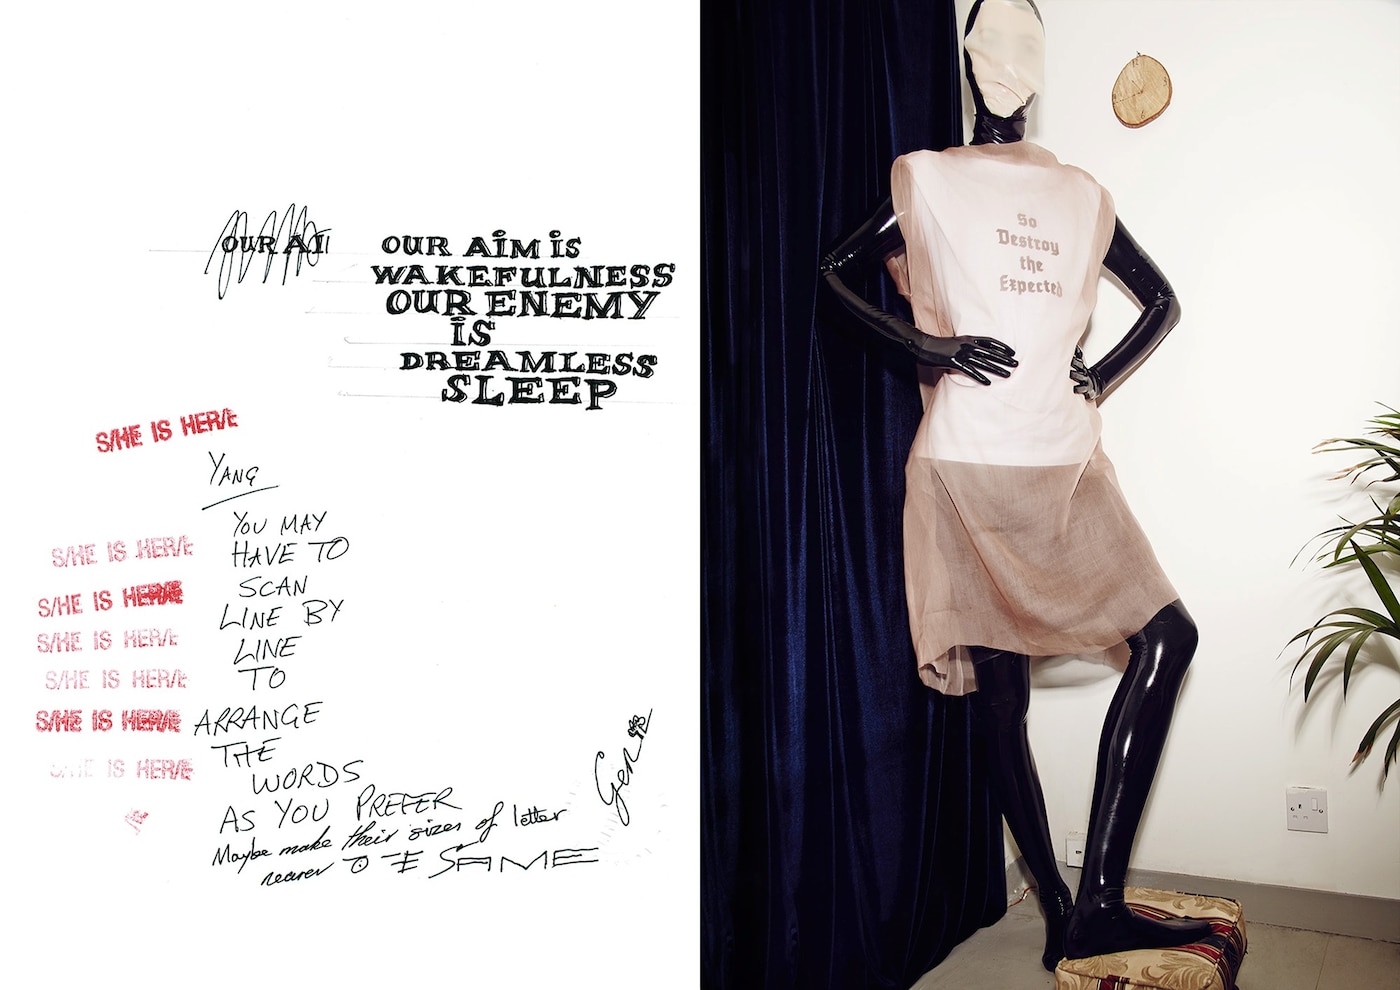 OUR AI
OUR AIM IS
WAKEFULNESS
OUR ENEMY
IS
DREAMLESS
SLEEP
S/HE IS HER/E
YANG
YOU MAY
HAVE TO
SCAN
LINE BY
LINE
TO
ARRANGE
THE
WORDS
AS YOU PREFER
Maybe make their sizes of letter
nearer SAME
S/HE IS HER/E
S/HE IS HER/E
S/HE IS HER/E
S/HE IS HER/E
S/HE IS HER/E
S/HE IS HER/E
Gen
So
Destroy
the
Expected